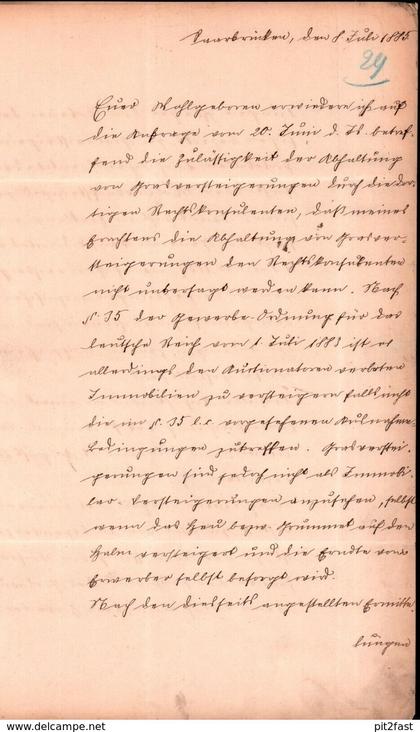 Saarbrücken, den 8 Juli 1885.
29
Euer Wohlgeboren erwiedere ich auf
die Anfrage vom 20. Juni d. Js. betref-
fend die Zulässigkeit der Abhaltung
von Grasversteigerungen durch die dor-
tigen Rechtskonsulenten, daß meines
Erachtens die Abhaltung von Grasver-
steigerungen den Rechtskonsulenten
nicht untersagt werden kann. Nach
§. 35 der Gewerbe-Ordnung für das
deutsche Reich vom 1. Juli 1883 ist es
allerdings den Auctionatoren verboten
Immobilien zu versteigern falls nicht
die im §. 35 l.c. vorgesehenen Ausnahme-
bedingungen zutreffen. Grasverstei-
gerungen sind jedoch nicht als Immobi-
lar-Versteigerungen anzusehen, selbst
wenn das Heu bezw. Grummet auf dem
Halm versteigert und die Erndte vom
Erwerber selbst besorgt wird.
Nach den diesseits angestellten Ermitte
lungen
www.pit2fast - pit2fast